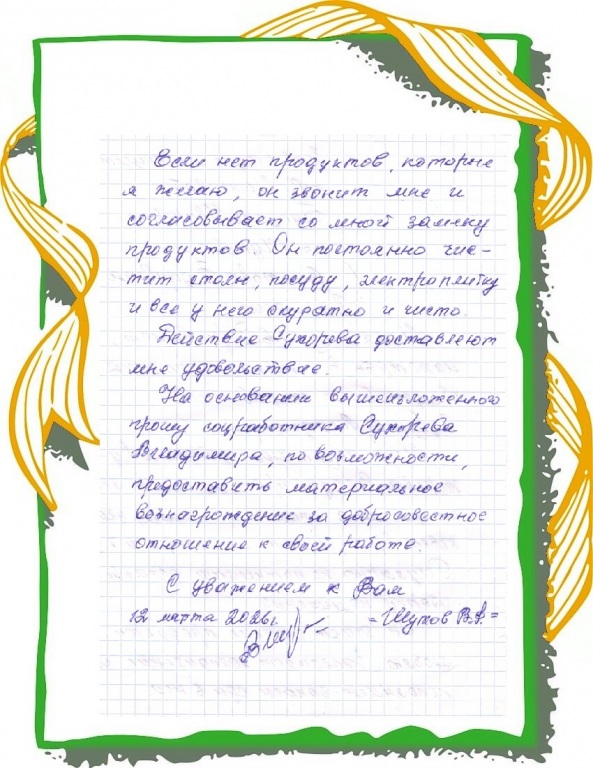 Если нет продуктов, которые
я желаю, он звонит мне и
согласовывает со мной замену
продуктов. Он постоянно чис-
тит столы, посуду, электроплитку
и все у него окуратно и чисто.
Действие Сухорева доставляют
мне удовольствие.
На основании вышеизложенного
прошу соцработника Сухорева
Владимира, по возможности,
предоставить материальное
вознагрождение за добросовестное
отношение к своей работе.
С уважением к Вам
12 марта 2026г. =Шухов В.А.=